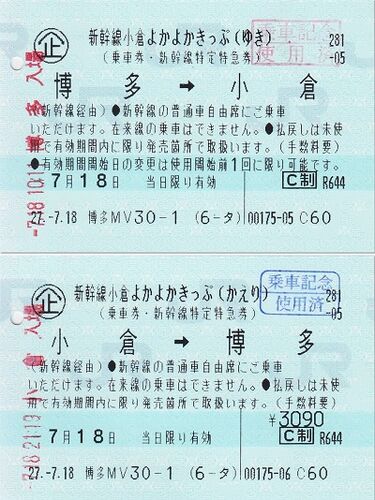 企 新幹線小倉よかよかきっぷ(ゆき) 281
(乗車券・新幹線特定特急券) -05
乗車記念
使用済
博多 → 小倉
(新幹線経由)●新幹線の普通車自由席にご乗車
いただけます。在来線の乗車はできません。●払戻しは未使
用で有効期間内に限り発売箇所で取扱います。(手数料要)
●有効期間開始日の変更は使用開始前1回に限り可能です。
7月18日 当日限り有効 C制 R644
27.-7.18 博多MV30-1 (6-タ) 00175-05 C60
博多 入場
企 新幹線小倉よかよかきっぷ(かえり) 281
(乗車券・新幹線特定特急券) -05
乗車記念
使用済
小倉 → 博多
(新幹線経由)●新幹線の普通車自由席にご乗車
いただけます。在来線の乗車はできません。●払戻しは未使
用で有効期間内に限り発売箇所で取扱います。(手数料要)
¥3090
7月18日 当日限り有効 C制 R644
27.-7.18 博多MV30-1 (6-タ) 00175-06 C60
小倉 入場